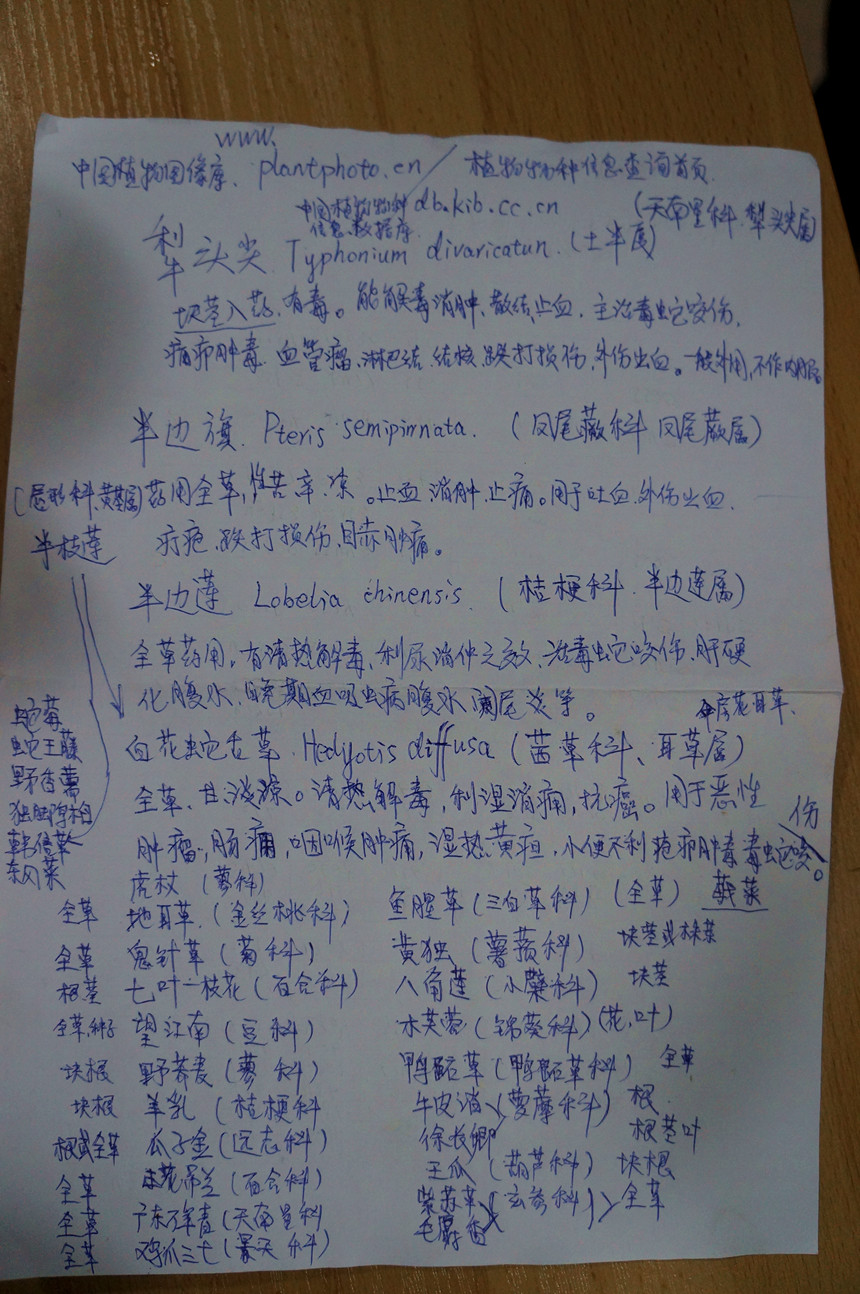 www.
中国植物图像库. plantphoto.cn / 植物物种信息查询首页
中国植物物种信息数据库 db.kib.cc.cn (天南星科.犁头尖属)
犁头尖 Typhonium divaricatun. (土半夏)
块茎入药,有毒。能解毒消肿、散结、止血.主治毒蛇咬伤,
痈疖肿毒.血管瘤、淋巴结.结核、跌打损伤,外伤出血。一般外用,不作内服
半边旗. Pteris semipinnata. (凤尾蕨科 凤尾蕨属)
(唇形科、黄芩属) 药用全草,性苦.辛.凉。止血,消肿,止痛。用于吐血,外伤出血,
半枝莲 疔疮,跌打损伤,目赤肿痛。
半边莲 Lobelia chinensis. (桔梗科.半边莲属)
全草药用,有清热解毒、利尿消肿之效,治毒蛇咬伤、肝硬
化腹水、晚期血吸虫病腹水、阑尾炎等。
伞房花耳草、
白花蛇舌草. Hedyotis diffusa (茜草科、耳草属)
全草、甘淡凉。清热解毒,利湿消痛,抗癌。用于恶性
肿瘤,肠痈,咽喉肿痛,湿热黄疸,小便不利,疮疖肿毒,毒蛇咬伤。
蛇莓
蛇王藤
野香薷
韩信草
东风菜
虎杖 (蓼科)
全草 地耳草.(金丝桃科) 鱼腥草(三白草科) (全草) 蕺菜
全草 鬼针草(菊科) 黄独(薯蓣科) 块茎或
根茎 七叶一枝花(百合科) 八角莲(小檗科) 块茎
全草,种子 望江南(豆科) 木芙蓉(锦葵科)(花,叶)
块根 野荞麦(蓼科) 鸭跖草(鸭跖草科) 全草
块根 羊乳(桔梗科 牛皮消(萝藦科) 根.
徐长卿 根茎叶
根或全草 瓜子金(远志科) 王瓜(葫芦科) 块根
全草 吊兰(百合科) 紫苏草(玄参科) 全草
全草 广东万年青(天南星科 毛麝香
全草 鸡爪三七(景天科)